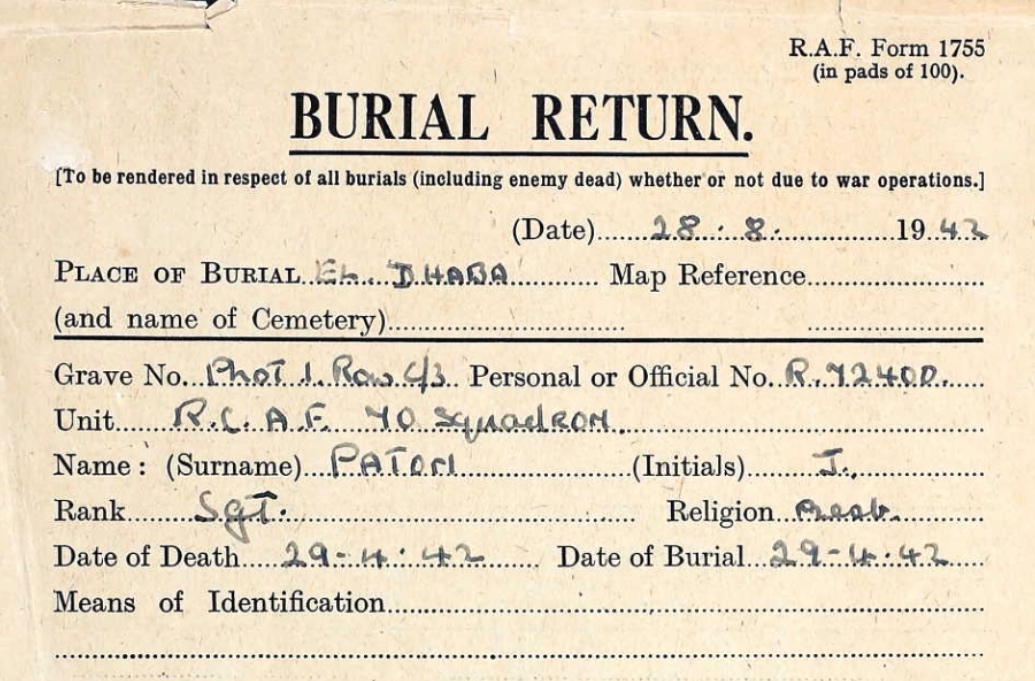 R.A.F. Form 1755
(in pads of 100).
BURIAL RETURN.
[To be rendered in respect of all burials (including enemy dead) whether or not due to war operations.]
(Date) 28 . 8 . 1942
PLACE OF BURIAL EL. DHABA Map Reference
(and name of Cemetery)
Grave No. Plot 1. Row C/3. Personal or Official No. R.72400.
Unit R.C.A.F. 70 Squadron.
Name : (Surname) PATON (Initials) J.
Rank Sgt. Religion
Date of Death 29-4-42 Date of Burial 29-4-42
Means of Identification